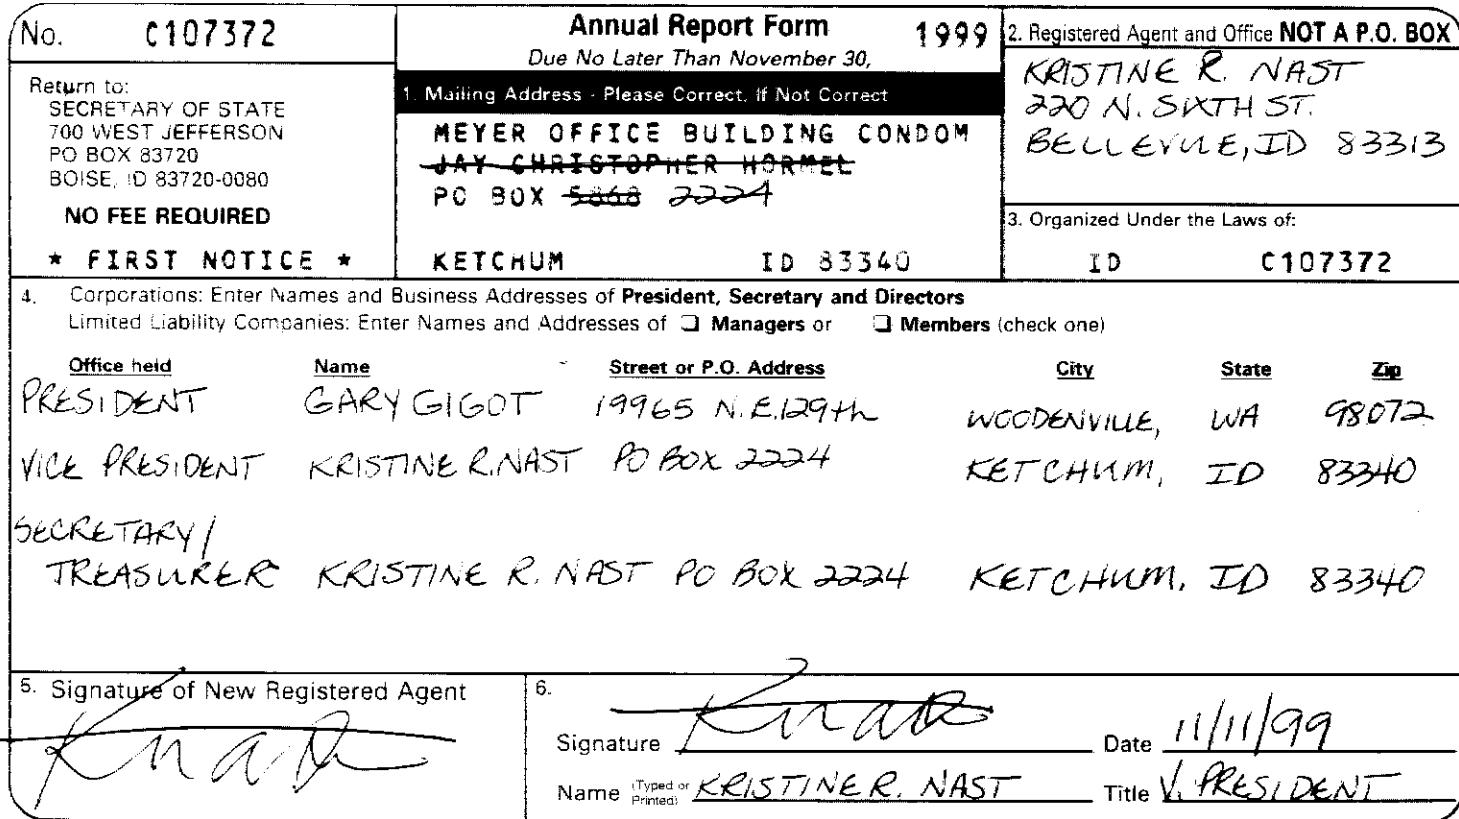 No. C107372
Return to:
SECRETARY OF STATE
700 WEST JEFFERSON
PO BOX 83720
BOISE, ID 83720-0080
NO FEE REQUIRED
* FIRST NOTICE *
Annual Report Form 1999
Due No Later Than November 30,
1. Mailing Address - Please Correct, If Not Correct
MEYER OFFICE BUILDING CONDOM
JAY CHRISTOPHER HORMEL
PO BOX 5868 2224
KETCHUM ID 83340
2. Registered Agent and Office NOT A P.O. BOX
KRISTINE R. NAST
220 N. SIXTH ST.
BELLEVUE, ID 83313
3. Organized Under the Laws of:
ID C107372
4. Corporations: Enter Names and Business Addresses of President, Secretary and Directors
Limited Liability Companies: Enter Names and Addresses of ❑ Managers or ❑ Members (check one)
Office held Name Street or P.O. Address City State Zip
PRESIDENT GARY GIGOT 19965 N.E. 129th WOODENVILLE, WA 98072
VICE PRESIDENT KRISTINE R. NAST PO BOX 2224 KETCHUM, ID 83340
SECRETARY/
TREASURER KRISTINE R. NAST PO BOX 2224 KETCHUM, ID 83340
5. Signature of New Registered Agent
6.
Signature Date 11/11/99
Name (Typed or Printed) KRISTINE R. NAST Title V. PRESIDENT